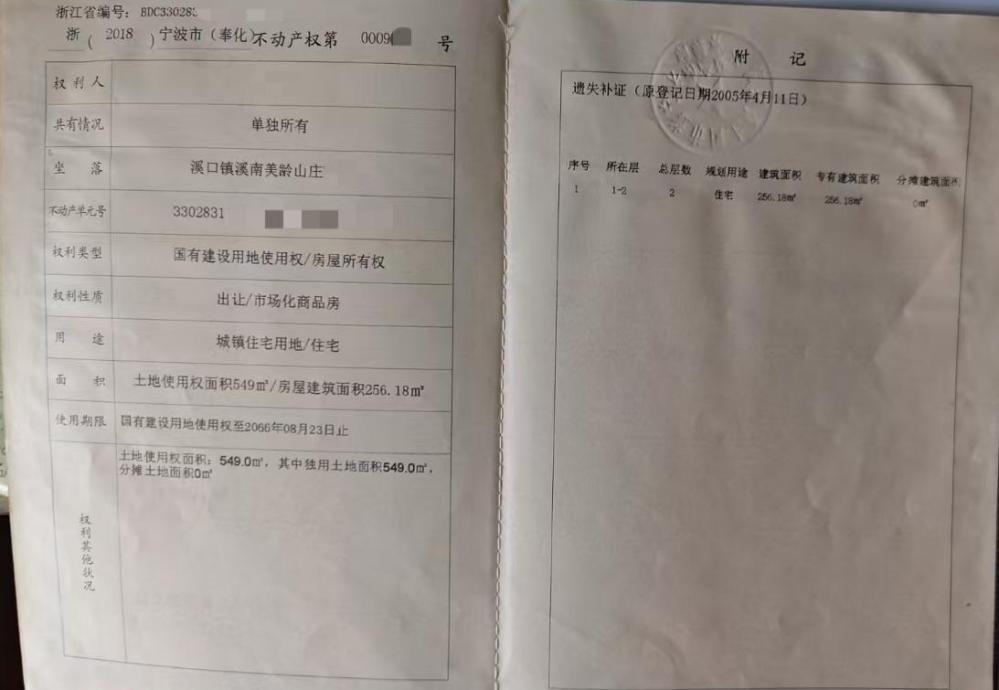 浙江省编号：BDC33028
浙（2018）宁波市（奉化）不动产权第 0009 号
权利人
共有情况 单独所有
坐 落 溪口镇溪南美龄山庄
不动产单元号 3302831
权利类型 国有建设用地使用权/房屋所有权
权利性质 出让/市场化商品房
用 途 城镇住宅用地/住宅
面 积 土地使用权面积549㎡/房屋建筑面积256.18㎡
使用期限 国有建设用地使用权至2066年08月23日止
权利其他状况
土地使用权面积：549.0㎡，其中独用土地面积549.0㎡，
分摊土地面积0㎡
附 记
遗失补证（原登记日期2005年4月11日）
序号 所在层 总层数 规划用途 建筑面积 专有建筑面积 分摊建筑面积
1 1-2 2 住宅 256.18㎡ 256.18㎡ 0㎡